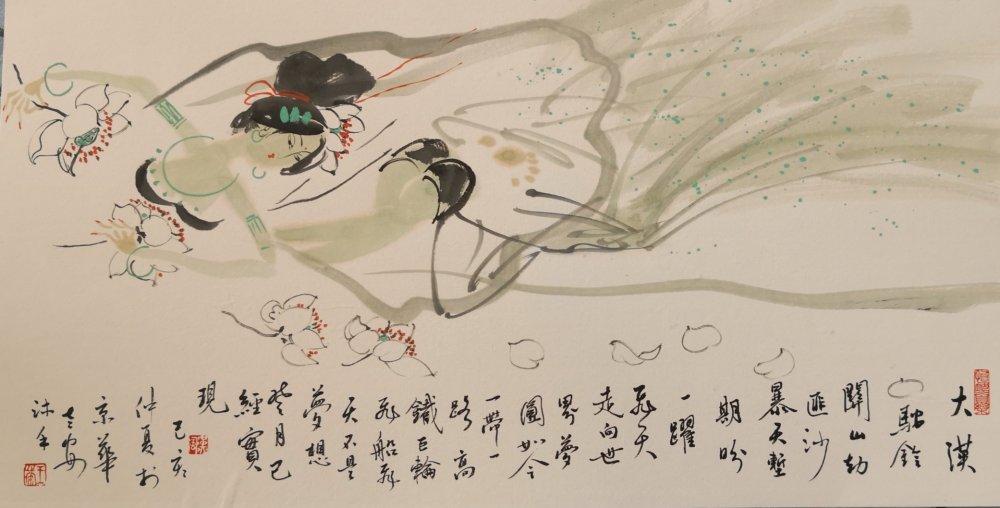 大漠
駝鈴
關山劫
匪沙
暴天塹
期盼
一躍
飛天
走向世
界夢
圖如今
一帶一
路高
鐵巨輪
飛船飛
天不是
夢想
登月已
經實
現
己亥
仲夏於
京華